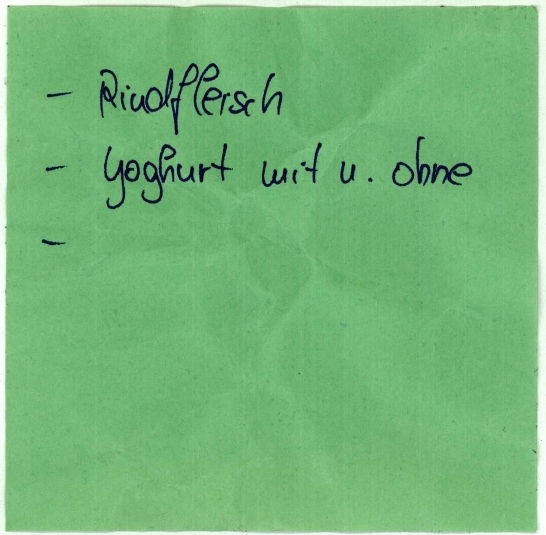 - Rindfleisch
- Yoghurt mit u. ohne
-